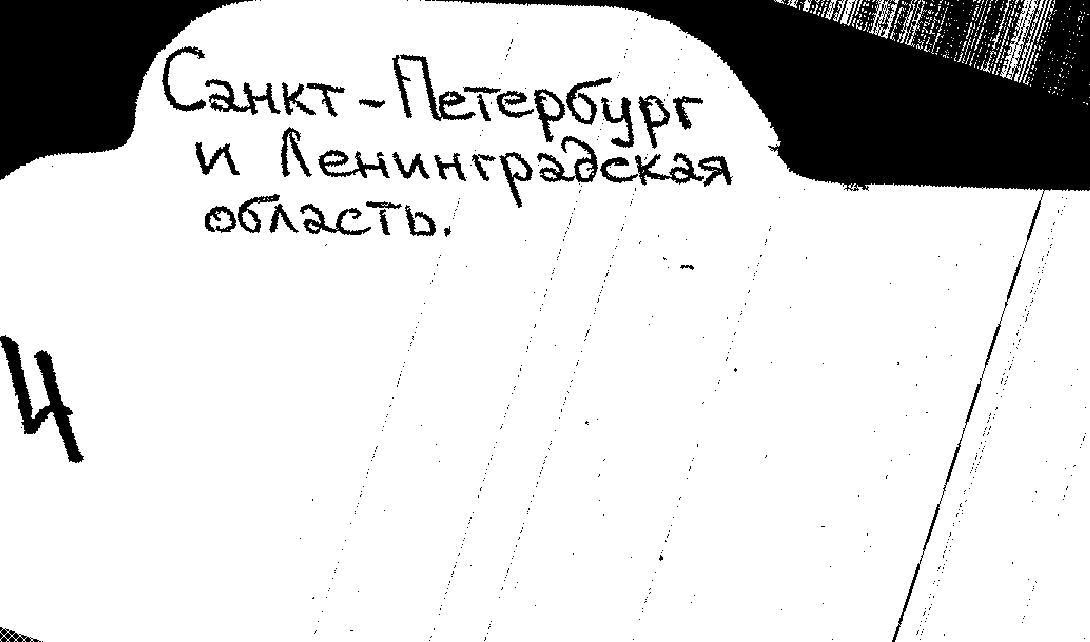 Санкт-Петербург
и Ленинградская
область.
4